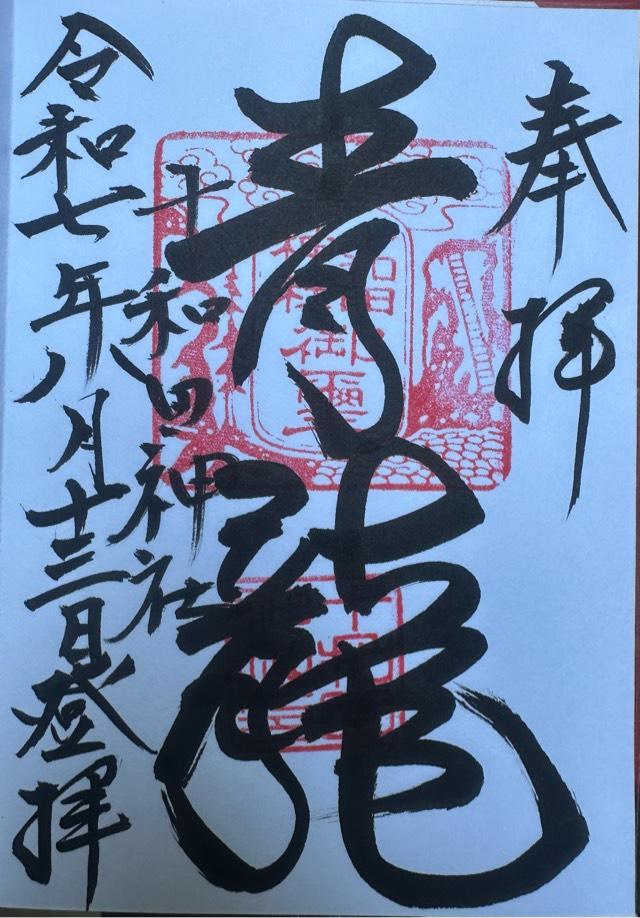 奉拝
青龍
十和田神社
令和七年八月十三日登拝